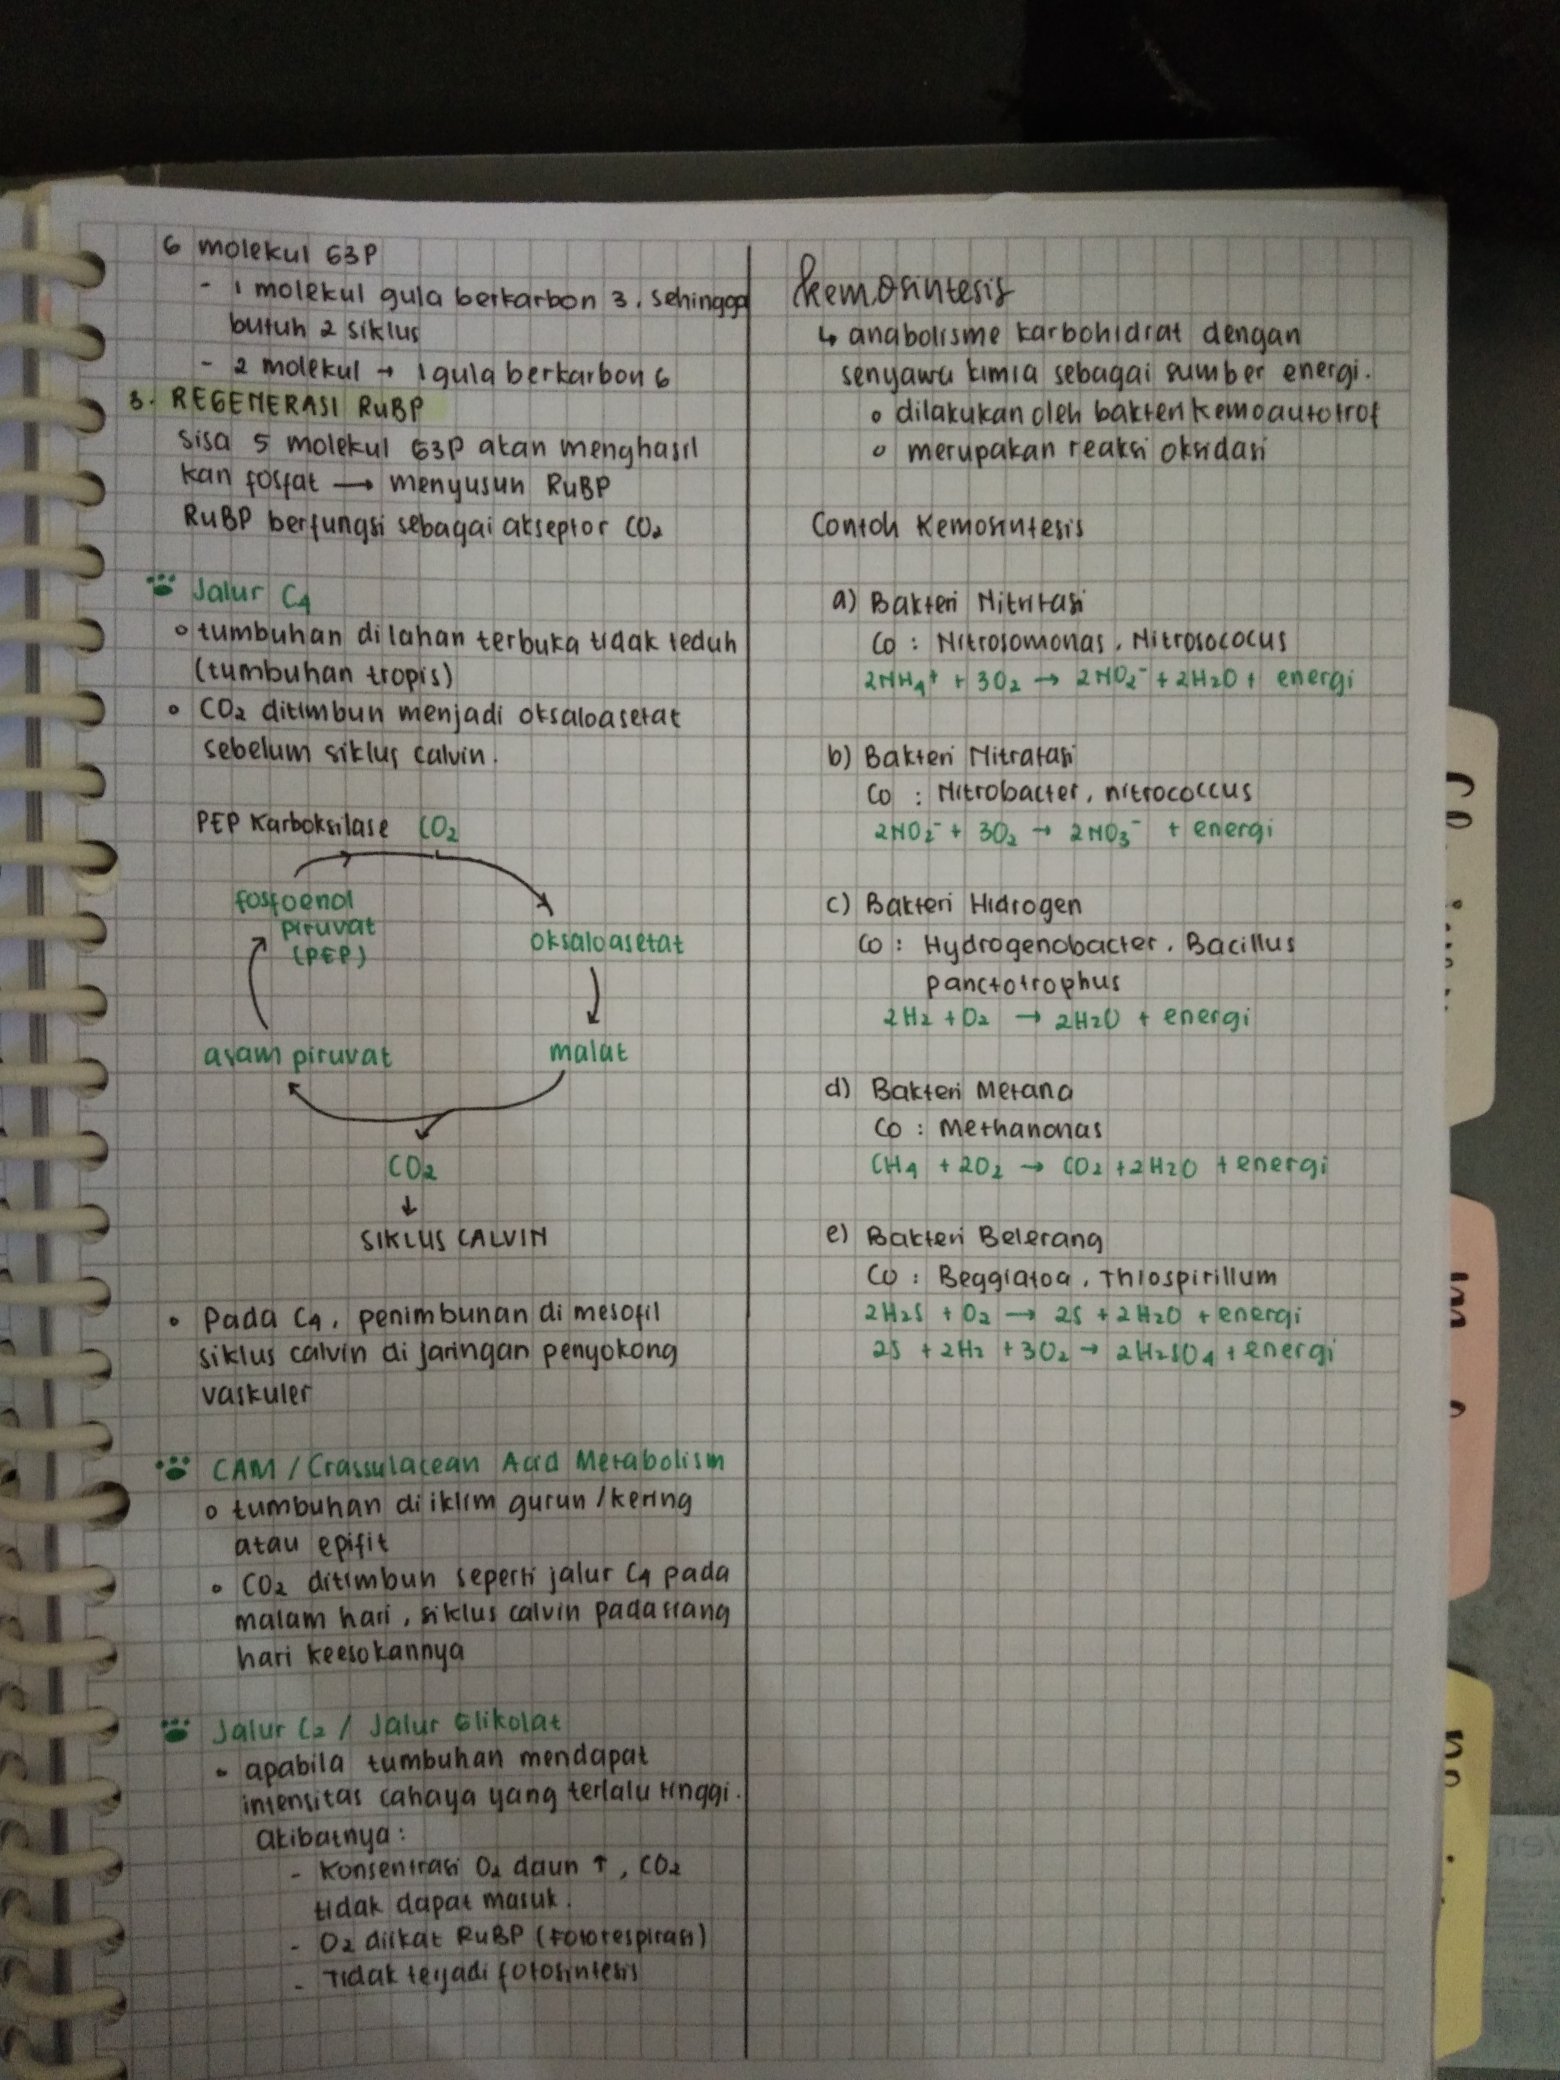 6 molekul G3P
- 1 molekul gula berkarbon 3, sehingga
butuh 2 siklus
- 2 molekul → 1 gula berkarbon 6
3. REGENERASI RuBP
sisa 5 molekul G3P akan menghasil
kan fosfat → menyusun RuBP
RuBP berfungsi sebagai akseptor CO₂
Jalur C₄
• tumbuhan di lahan terbuka tidak teduh
(tumbuhan tropis)
• CO₂ ditimbun menjadi oksaloasetat
sebelum siklus calvin.
PEP Karboksilase CO₂
fosfoenol
piruvat
(PEP)
oksaloasetat
asam piruvat
malat
CO₂
↓
SIKLUS CALVIN
• Pada C₄, penimbunan di mesofil
siklus calvin di jaringan penyokong
vaskuler
CAM / Crassulacean Acid Metabolism
• tumbuhan di iklim gurun / kering
atau epifit
• CO₂ ditimbun seperti jalur C₄ pada
malam hari, siklus calvin pada siang
hari keesokannya
Jalur C₂ / Jalur Glikolat
• apabila tumbuhan mendapat
intensitas cahaya yang terlalu tinggi.
akibatnya:
- Konsentrasi O₂ daun ↑, CO₂
tidak dapat masuk.
- O₂ diikat RuBP (fotorespirasi)
- Tidak terjadi fotosintesis
Kemosintesis
↳ anabolisme karbohidrat dengan
senyawa kimia sebagai sumber energi.
• dilakukan oleh bakteri kemoautotrof
• merupakan reaksi oksidasi
Contoh Kemosintesis
a) Bakteri Nitritasi
Co : Nitrosomonas, Nitrosococus
2NH₄⁺ + 3O₂ → 2NO₂⁻ + 2H₂O + energi
b) Bakteri Nitratasi
Co : Nitrobacter, nitrococcus
2NO₂⁻ + 3O₂ → 2NO₃⁻ + energi
c) Bakteri Hidrogen
Co : Hydrogenobacter, Bacillus
panctotrophus
2H₂ + O₂ → 2H₂O + energi
d) Bakteri Metana
Co : Methanonas
CH₄ + 2O₂ → CO₂ + 2H₂O + energi
e) Bakteri Belerang
Co : Beggiatoa, Thiospirillum
2H₂S + O₂ → 2S + 2H₂O + energi
2S + 2H₂ + 3O₂ → 2H₂SO₄ + energi